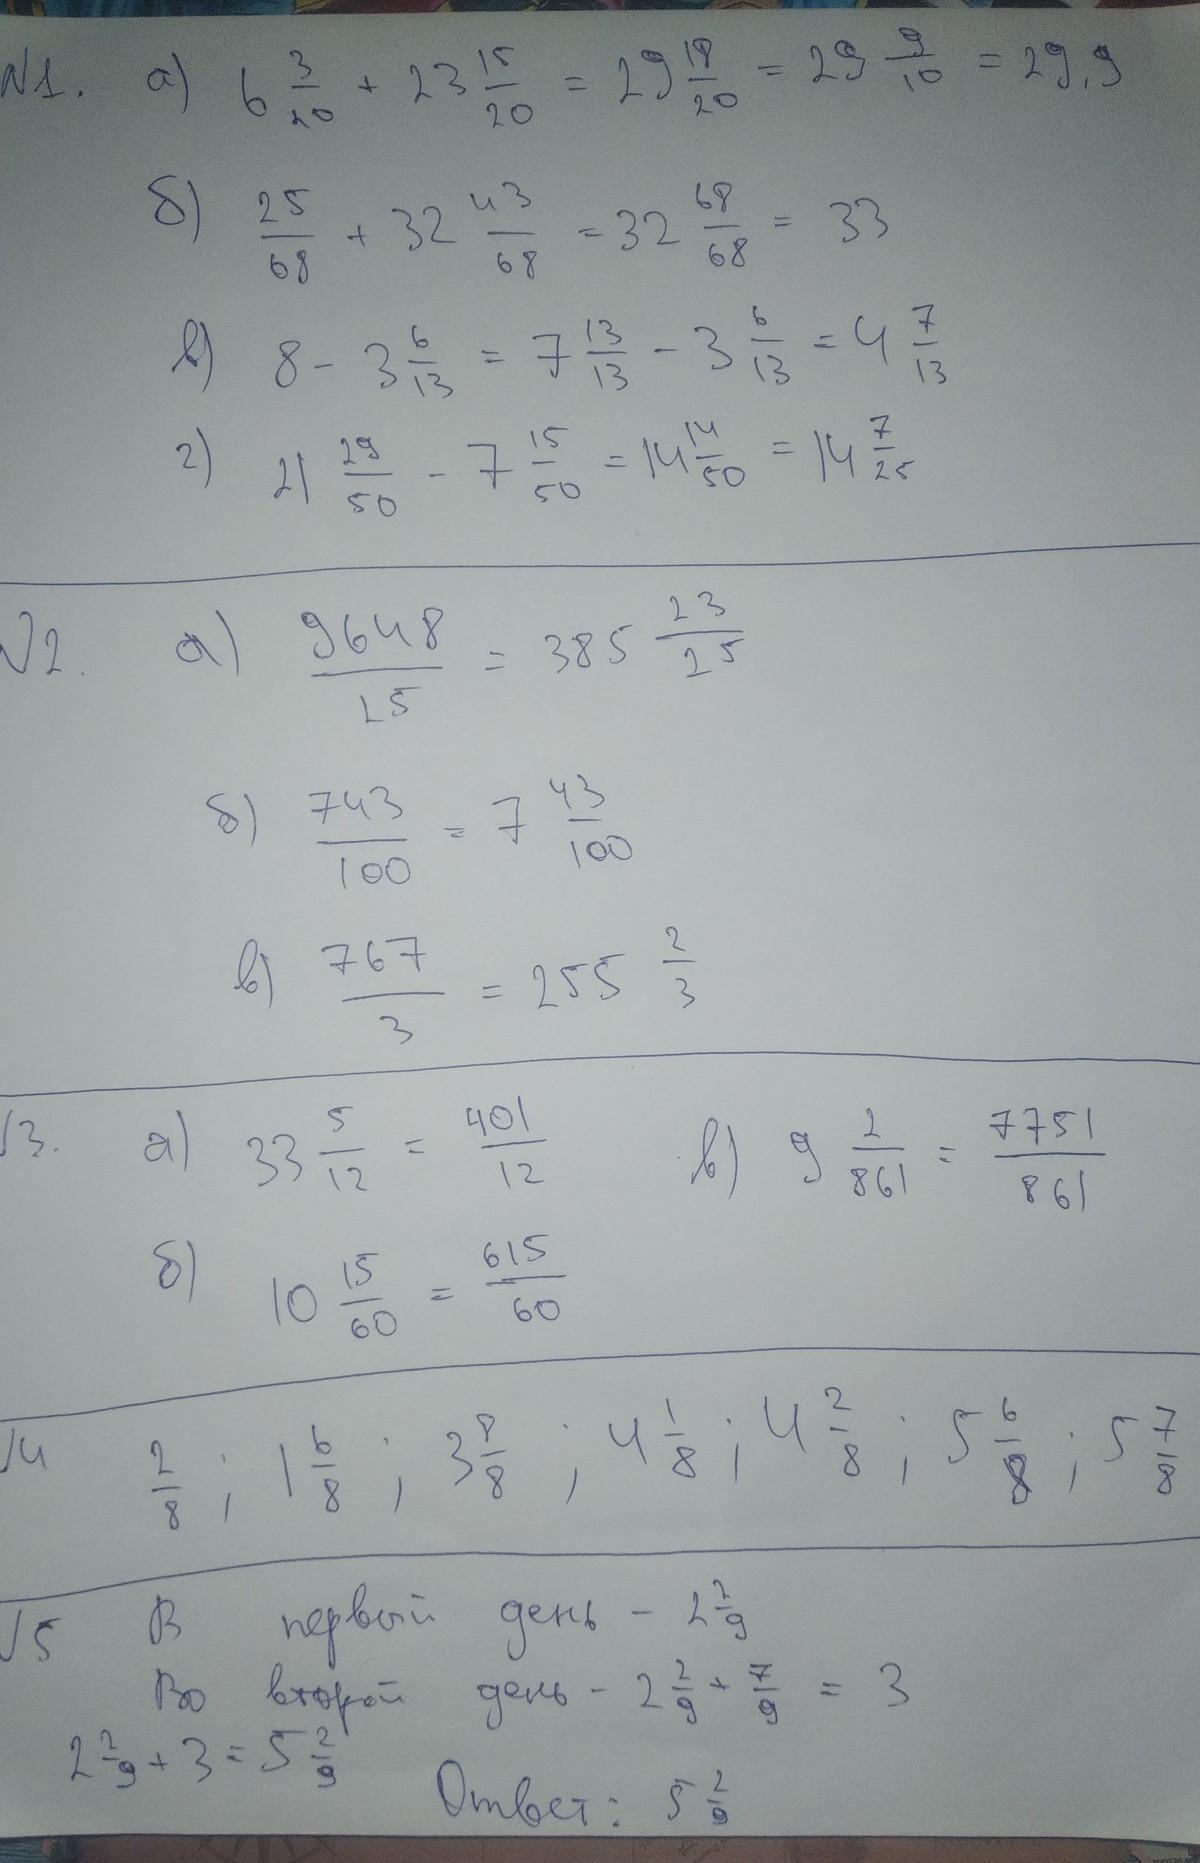 №1. а) 6 3/20 + 23 15/20 = 29 18/20 = 29 9/10 = 29,9
б) 25/68 + 32 43/68 = 32 68/68 = 33
в) 8 - 3 6/13 = 7 13/13 - 3 6/13 = 4 7/13
г) 21 29/50 - 7 15/50 = 14 14/50 = 14 7/25
№2. а) 9648/25 = 385 23/25
б) 743/100 = 7 43/100
в) 767/3 = 255 2/3
№3. а) 33 5/12 = 401/12 в) 9 2/861 = 7751/861
б) 10 15/60 = 615/60
№4 2/8 ; 1 6/8 ; 3 8/8 ; 4 1/8 ; 4 2/8 ; 5 6/8 ; 5 7/8
№5 В первый день - 2 2/9
Во второй день - 2 2/9 + 7/9 = 3
2 2/9 + 3 = 5 2/9
Ответ: 5 2/9